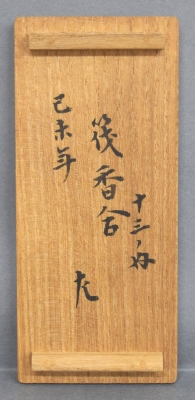 十三ノ内
筏香合
己未年